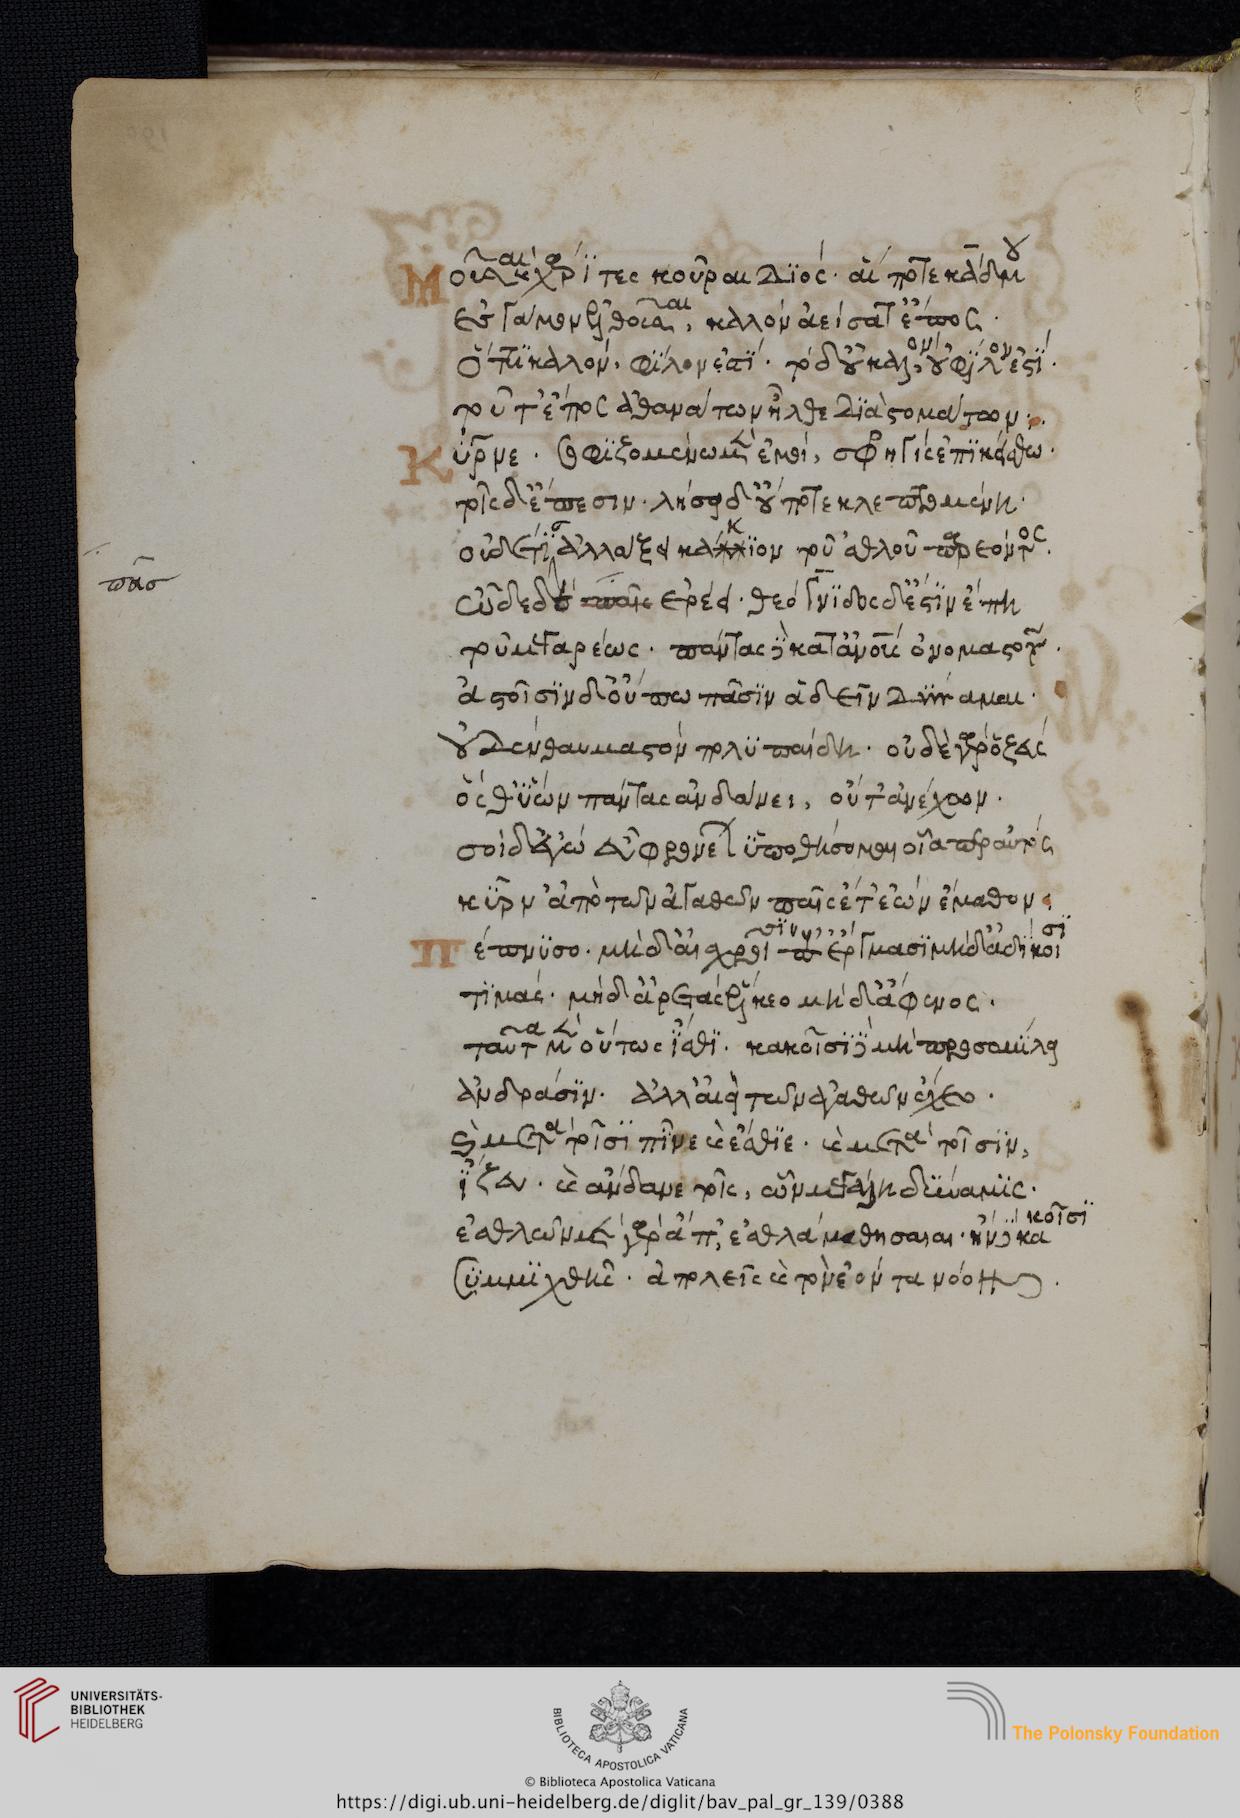 Μοῦσαι καὶ χάριτες κοῦραι Διός· αἵ ποτε κάδμου
ἐς γάμον ἐλθοῦσαι, καλὸν ἀείσατ' ἔπος·
ὅττι καλόν, φίλον ἐστί· τὸ δ' οὐ καλόν, οὐ φίλον ἐστί·
τοῦτ' ἔπος ἀθανάτων ἦλθε διὰ στομάτων·
Κύρνε· σοφιζομένω μὲν ἐμοί, σφρηγὶς ἐπικείσθω·
τοῖς δ' ἔπεσιν· λήσει δ' οὔποτε κλεπτόμενη·
οὐδέ τις ἀλλάξει κάκιον τοῦ ἐσθλοῦ παρεόντος·
ὧδε δὲ ἐρέει· θεόγνιδός ἐστιν ἔπη
πᾶσ
τοῦ μεγαρέως· πάντας δὲ κατ' ἀνους ὀνομαστοῦ·
ἀστοῖσιν δ' οὔπω πᾶσιν ἁδεῖν δύναμαι·
οὐδὲν θαυμαστὸν πολυπαίδη· οὐδὲ γὰρ ὁ ζεὺς
ὅς θ' ὕων πάντας ἁνδάνει, οὔτ' ἀνέχων·
σοὶ δ' ἐγὼ εὖ φρονέων ὑποθήσομαι οἷα περ αὐτὸς
κύρν' ἀπὸ τῶν ἀγαθῶν παῖς ἔτ' ἐὼν ἔμαθον·
Πέπνυσο· μηδ' αἰσχροῖσιν ἐπ' ἔργμασι μηδ' ἀδίκοισι
τιμὰς· μηδ' ἀρετὰς ἕλκεο μηδ' ἄφενος·
ταῦτα μὲν οὕτως ἴσθι· κακοῖσι δὲ μὴ προσομίλει
ἀνδράσιν· ἀλλ' αἰεὶ τῶν ἀγαθῶν ἔχεο·
καὶ μετὰ τοῖσι πῖνε καὶ ἔσθιε· καὶ μετὰ τοῖσιν,
ἵζευ· καὶ ἅνδανε τοῖς, ὧν μεγάλη δύναμις·
ἐσθλῶν μὲν γὰρ ἀπ', ἐσθλὰ μαθήσεαι· ἢν δὲ κακοῖσι
συμμιχθῇς· ἀπολεῖς καὶ τὸν ἐόντα νόον·
UNIVERSITÄTS-
BIBLIOTHEK
HEIDELBERG
BIBLIOTECA APOSTOLICA VATICANA
The Polonsky Foundation
© Biblioteca Apostolica Vaticana
https://digi.ub.uni-heidelberg.de/diglit/bav_pal_gr_139/0388